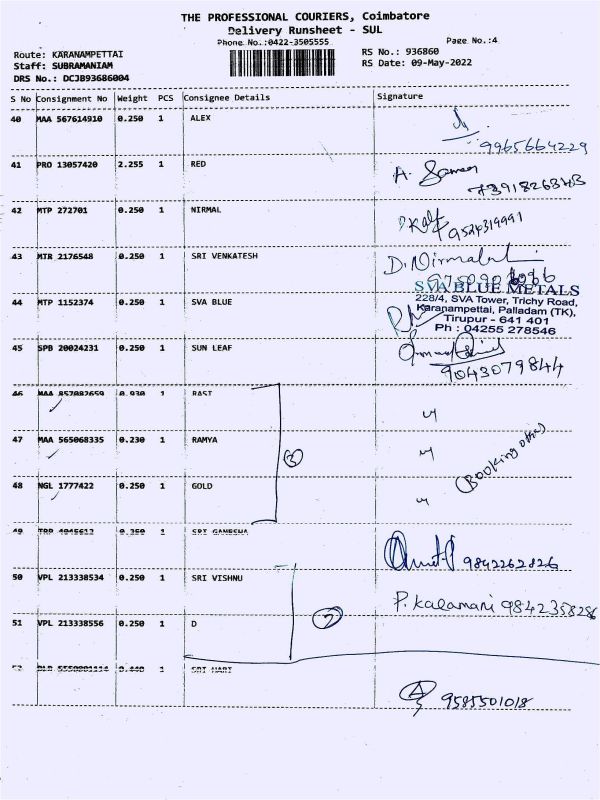 THE PROFESSIONAL COURIERS, Coimbatore
Delivery Runsheet - SUL
Phone No.:0422-3505555
Page No.:4
Route: KARANAMPETTAI
RS No.: 936860
Staff: SUBRAMANIAM
RS Date: 09-May-2022
DRS No.: DCJB93686004
S No Consignment No Weight PCS Consignee Details Signature
40 MAA 567614910 0.250 1 ALEX
9965664229
41 PRO 13057420 2.255 1 RED
A.
42 MTP 272701 0.250 1 NIRMAL
9524319991
43 MTR 2176548 0.250 1 SRI VENKATESH
D. Nirmala
44 MTP 1152374 0.250 1 SVA BLUE
SVA BLUE METALS
228/4, SVA Tower, Trichy Road,
Karanampettai, Palladam (TK),
Tirupur - 641 401
Ph : 04255 278546
45 SPB 20024231 0.250 1 SUN LEAF
9043079844
46 MAA 857082659 0.930 1 RAST
47 MAA 565068335 0.230 1 RAMYA
Booking
48 NGL 1777422 0.250 1 GOLD
49 TRP 1 SRI GANESHA
9842262826
50 VPL 213338534 0.250 1 SRI VISHNU
P. Kalamani 9842358286
51 VPL 213338556 0.250 1 D
7
1 SRI HARI
9585501018